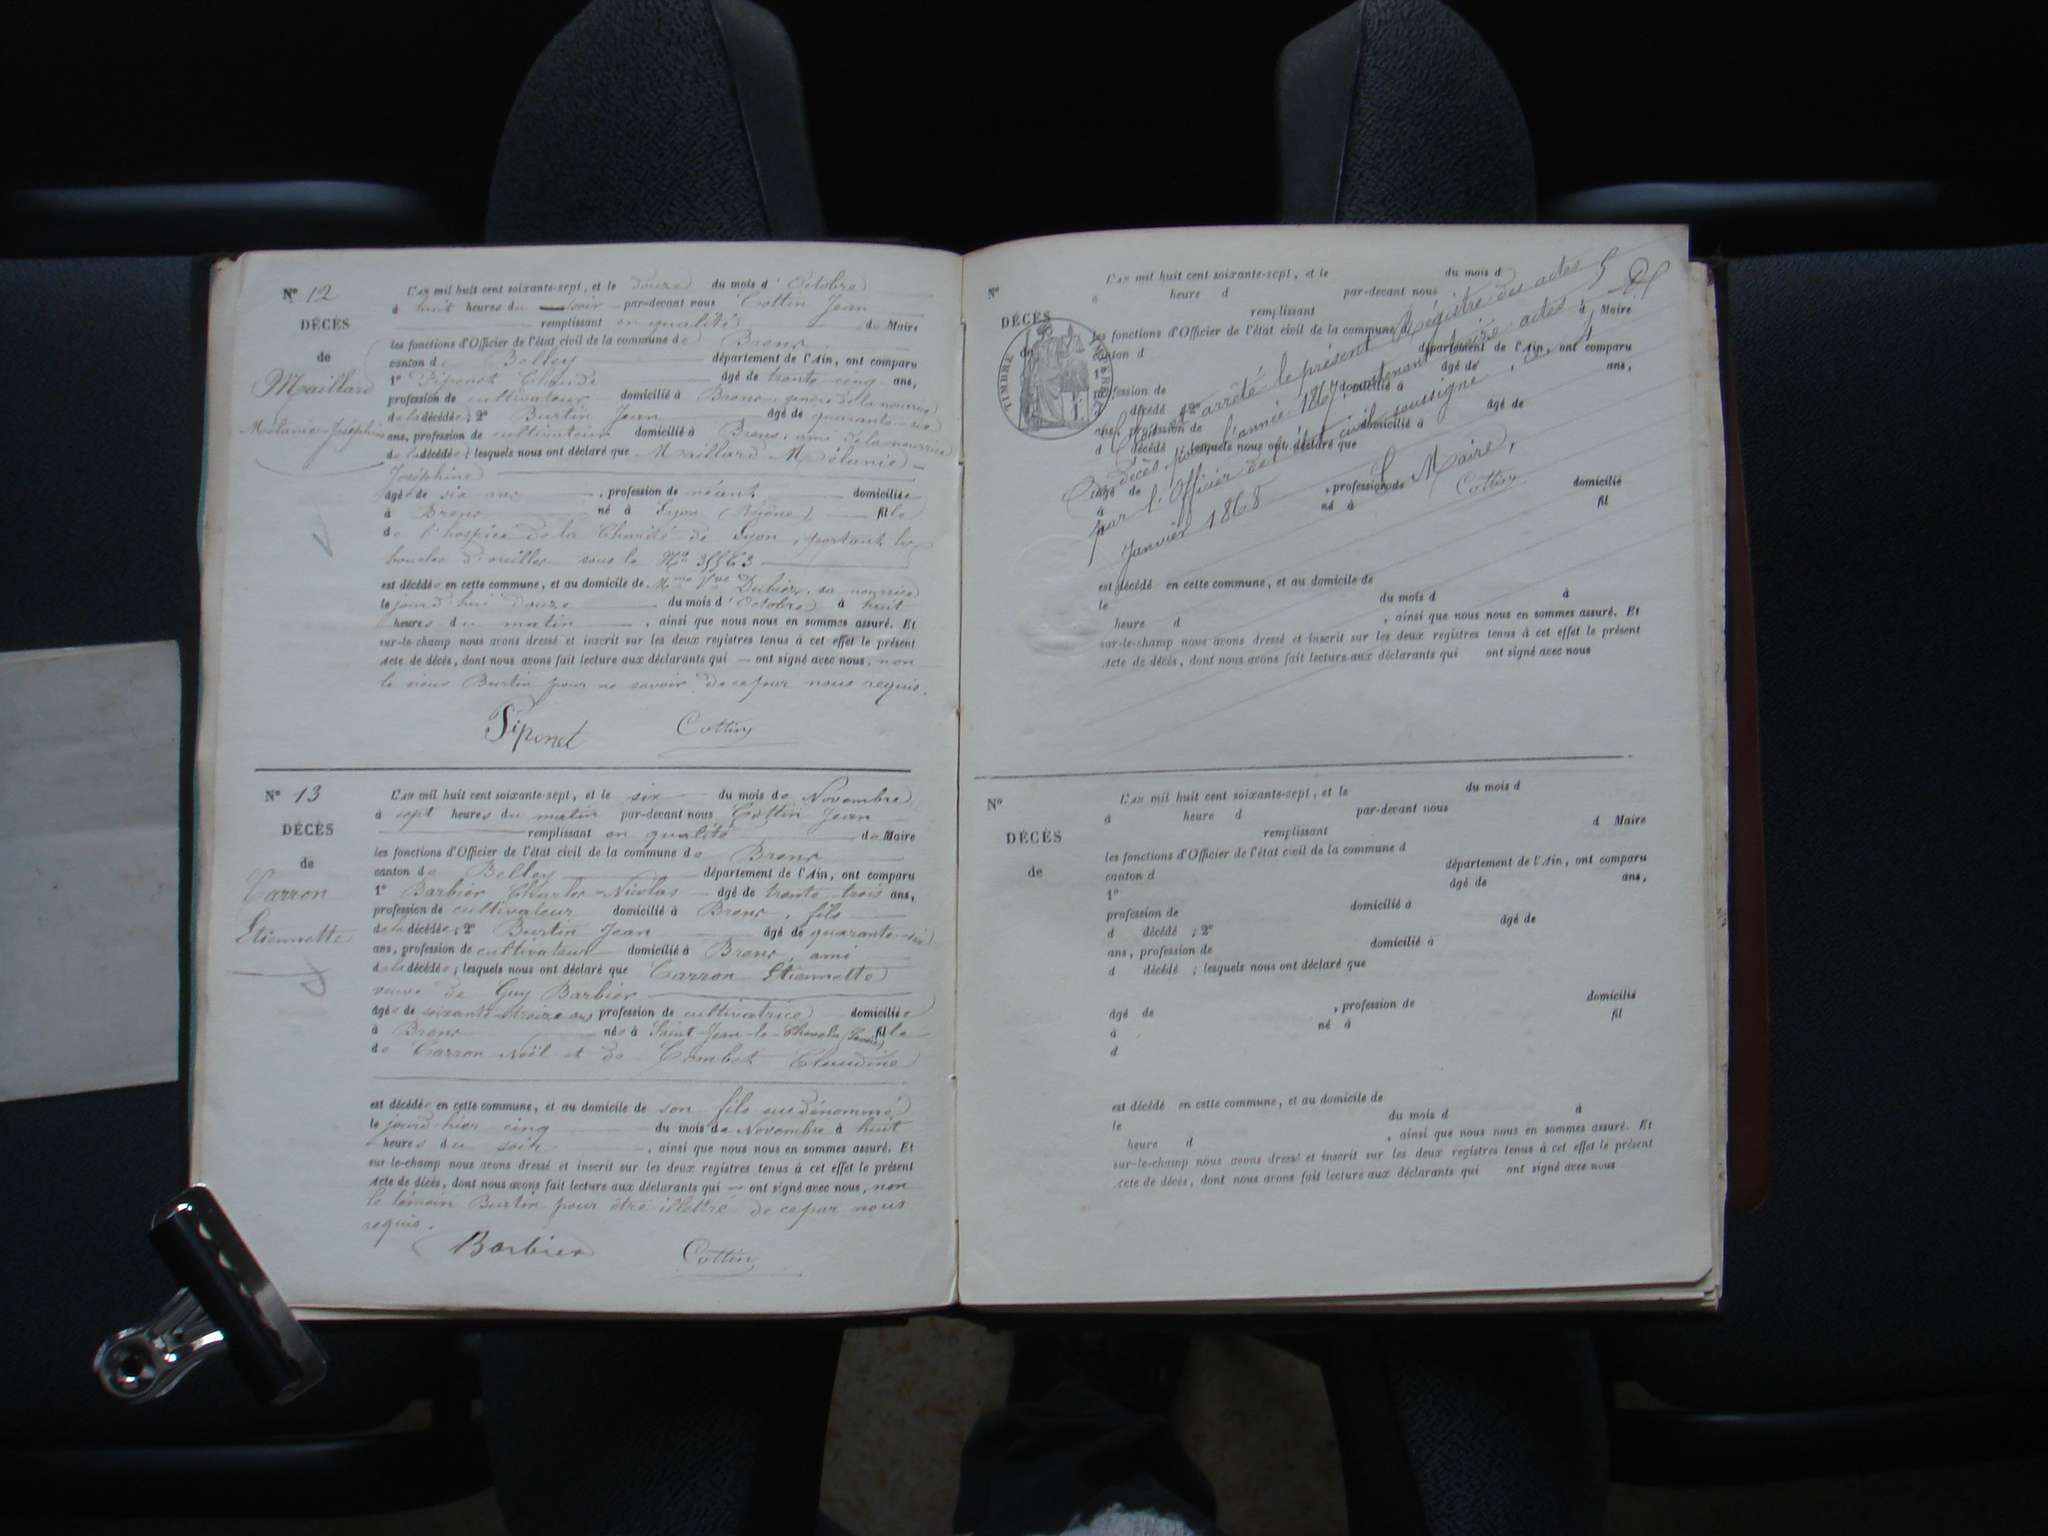 N° 12
DÉCÈS
de
Maillard
Mélanie-Joséphine
L'an mil huit cent soixante-sept, et le douze du mois d'Octobre
à huit heures du soir par-devant nous Cottin Jean
remplissant en qualité de Maire
les fonctions d'Officier de l'état civil de la commune de Brens
canton de Belley département de l'Ain, ont comparu
1° Piponet Claude âgé de trente-cinq ans,
profession de cultivateur domicilié à Brens, gendre de la nourrice
de la décédée ; 2° Burtin Jean âgé de quarante-six
ans, profession de cultivateur domicilié à Brens, ami de la nourrice
de la décédée ; lesquels nous ont déclaré que Maillard Mélanie-
Joséphine
âgé de six ans , profession de néant domiciliée
à Brens né à Lyon (Rhône) fille
de l'hospice de la Charité de Lyon, portant les
boucles d'oreilles sous le N° 35563
est décédée en cette commune, et au domicile de Mme Vve Dubiez, sa nourrice
le jourd'hui douze du mois d'Octobre à huit
heures du matin , ainsi que nous nous en sommes assuré. Et
sur-le-champ nous avons dressé et inscrit sur les deux registres tenus à cet effet le présent
acte de décès, dont nous avons fait lecture aux déclarants qui ont signé avec nous, non
le sieur Burtin pour ne savoir de ce par nous requis.
Piponet Cottin
N° 13
DÉCÈS
de
Carron
Etiennette
L'an mil huit cent soixante-sept, et le six du mois de Novembre
à sept heures du matin par-devant nous Cottin Jean
remplissant en qualité de Maire
les fonctions d'Officier de l'état civil de la commune de Brens
canton de Belley département de l'Ain, ont comparu
1° Barbier Charles-Nicolas âgé de trente-trois ans,
profession de cultivateur domicilié à Brens, fils
de la décédée ; 2° Burtin Jean âgé de quarante-six
ans, profession de cultivateur domicilié à Brens, ami
de la décédée ; lesquels nous ont déclaré que Carron Etiennette
veuve de Guy Barbier
âgée de soixante-treize ans profession de cultivatrice domiciliée
à Brens née à Saint-Jean-le-Chevelu (Savoie) fille
de Carron Noël et de Combet Claudine
est décédée en cette commune, et au domicile de son fils susdénommé
le jourd'hier cinq du mois de Novembre à huit
heures du soir , ainsi que nous nous en sommes assuré. Et
sur-le-champ nous avons dressé et inscrit sur les deux registres tenus à cet effet le présent
acte de décès, dont nous avons fait lecture aux déclarants qui ont signé avec nous, non
le témoin Burtin pour être illettré de ce par nous
requis.
Barbier Cottin
N°
DÉCÈS
de
TIMBRE
L'an mil huit cent soixante-sept, et le du mois d
à heure d par-devant nous
remplissant d Maire
les fonctions d'Officier de l'état civil de la commune d
canton d département de l'Ain, ont comparu
1° âgé de ans,
profession de domicilié à
d décédé ; 2° âgé de
ans, profession de domicilié à
d décédé ; lesquels nous ont déclaré que
âgé de , profession de domicilié
à né à fil
d
arrêté le présent Régistre des actes
de décès, pour l'année 1867, contenant treize actes
par l'Officier de l'état civil soussigné
Janvier 1868
Le Maire,
Cottin
est décédé en cette commune, et au domicile de
le du mois d à
heure d , ainsi que nous nous en sommes assuré. Et
sur-le-champ nous avons dressé et inscrit sur les deux registres tenus à cet effet le présent
acte de décès, dont nous avons fait lecture aux déclarants qui ont signé avec nous
N°
DÉCÈS
de
L'an mil huit cent soixante-sept, et le du mois d
à heure d par-devant nous
remplissant d Maire
les fonctions d'Officier de l'état civil de la commune d
canton d département de l'Ain, ont comparu
1° âgé de ans,
profession de domicilié à
d décédé ; 2° âgé de
ans, profession de domicilié à
d décédé ; lesquels nous ont déclaré que
âgé de , profession de domicilié
à né à fil
d
est décédé en cette commune, et au domicile de
le du mois d à
heure d , ainsi que nous nous en sommes assuré. Et
sur-le-champ nous avons dressé et inscrit sur les deux registres tenus à cet effet le présent
acte de décès, dont nous avons fait lecture aux déclarants qui ont signé avec nous